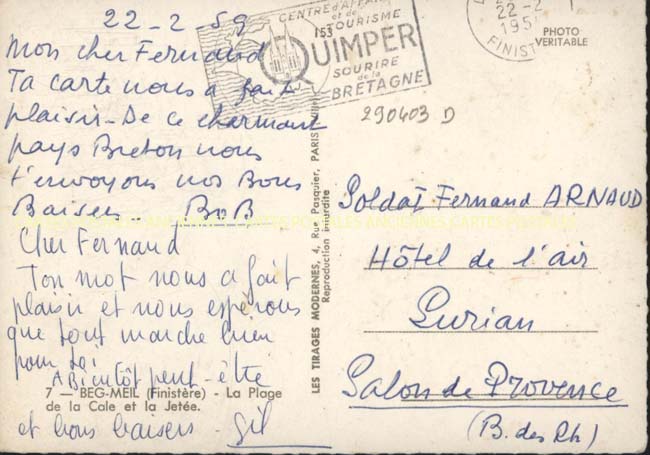 22-2-59
Mon cher Fernand
Ta carte nous a fait
plaisir - De ce charmant
pays Breton nous
t'envoyons nos Bons
Baisers..
Cher Fernand
Ton mot nous a fait
plaisir et nous espérons
que tout marche bien
pour toi
A Bientôt peut-être
7 — BEG-MEIL (Finistère) - La Plage
de la Cale et la Jetée.
et bons baisers - Gil
CENTRE d'AFFAIRES
et de
TOURISME
QUIMPER
SOURIRE
de la
BRETAGNE
153
22-2
195
FINIST
PHOTO
VERITABLE
290403 D
LES TIRAGES MODERNES, 4, Rue Pasquier, PARIS
Reproduction interdite
Soldat Fernand ARNAUD
Hôtel de l'air
Lurian
Salon de Provence
(B. des Rh)